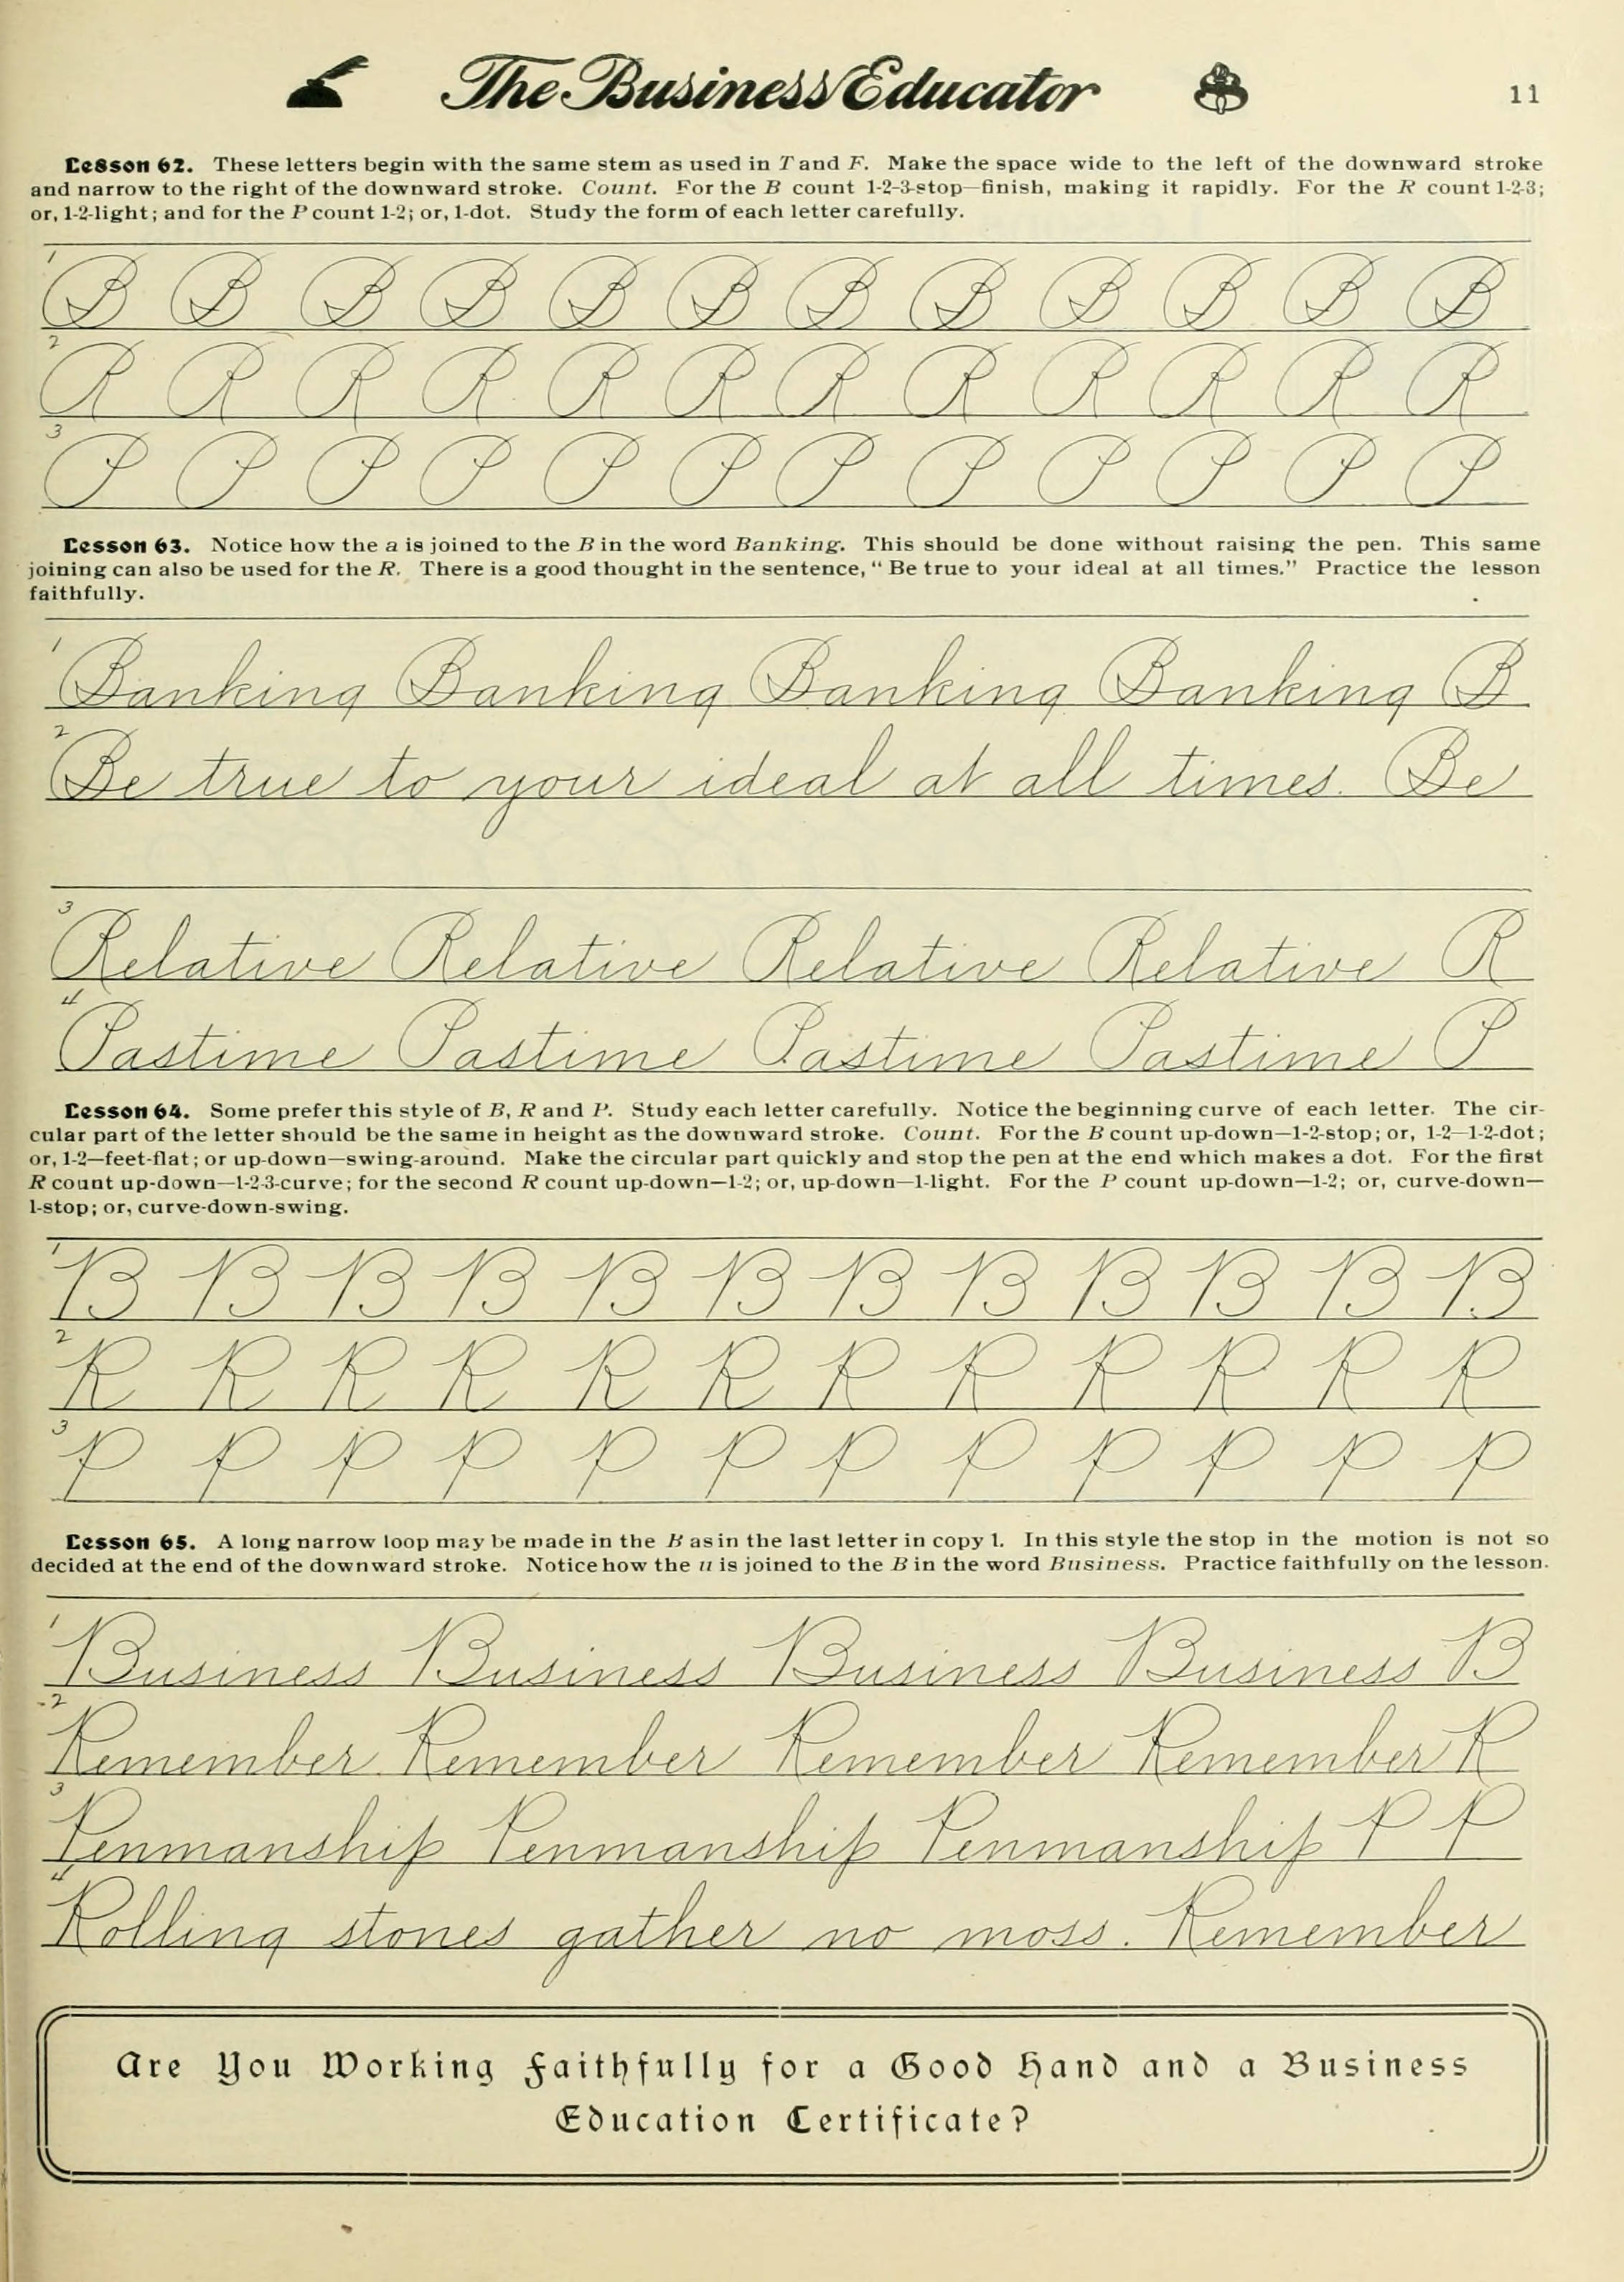 The Business Educator
11
Lesson 62. These letters begin with the same stem as used in T and F. Make the space wide to the left of the downward stroke
and narrow to the right of the downward stroke. Count. For the B count 1-2-3-stop—finish, making it rapidly. For the R count 1-2-3;
or, 1-2-light; and for the P count 1-2; or, 1-dot. Study the form of each letter carefully.
1
B B B B B B B B B B B B
2
R R R R R R R R R R R R
3
P P P P P P P P P P P P
Lesson 63. Notice how the a is joined to the B in the word Banking. This should be done without raising the pen. This same
joining can also be used for the R. There is a good thought in the sentence, "Be true to your ideal at all times." Practice the lesson
faithfully.
1
Banking Banking Banking Banking B
2
Be true to your ideal at all times. Be
3
Relative Relative Relative Relative R
4
Pastime Pastime Pastime Pastime P
Lesson 64. Some prefer this style of B, R and P. Study each letter carefully. Notice the beginning curve of each letter. The cir-
cular part of the letter should be the same in height as the downward stroke. Count. For the B count up-down—1-2-stop; or, 1-2—1-2-dot;
or, 1-2—feet-flat; or up-down—swing-around. Make the circular part quickly and stop the pen at the end which makes a dot. For the first
R count up-down—1-2-3-curve; for the second R count up-down—1-2; or, up-down—1-light. For the P count up-down—1-2; or, curve-down—
1-stop; or, curve-down-swing.
1
B B B B B B B B B B B B
2
R R R R R R R R R R R R
3
P P P P P P P P P P P P
Lesson 65. A long narrow loop may be made in the B as in the last letter in copy 1. In this style the stop in the motion is not so
decided at the end of the downward stroke. Notice how the u is joined to the B in the word Business. Practice faithfully on the lesson.
1
Business Business Business Business B
2
Remember Remember Remember Remember R
3
Penmanship Penmanship Penmanship P P
4
Rolling stones gather no moss. Remember
Are You Working Faithfully for a Good Hand and a Business
Education Certificate?